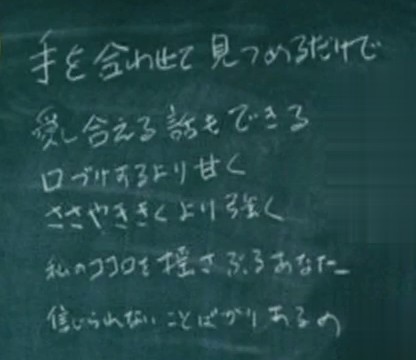 手を合わせて見つめるだけで
愛し合える話もできる
口づけするより甘く
ささやききくより強く
私のココロを揺さぶるあなた
信じられないことばかりあるの